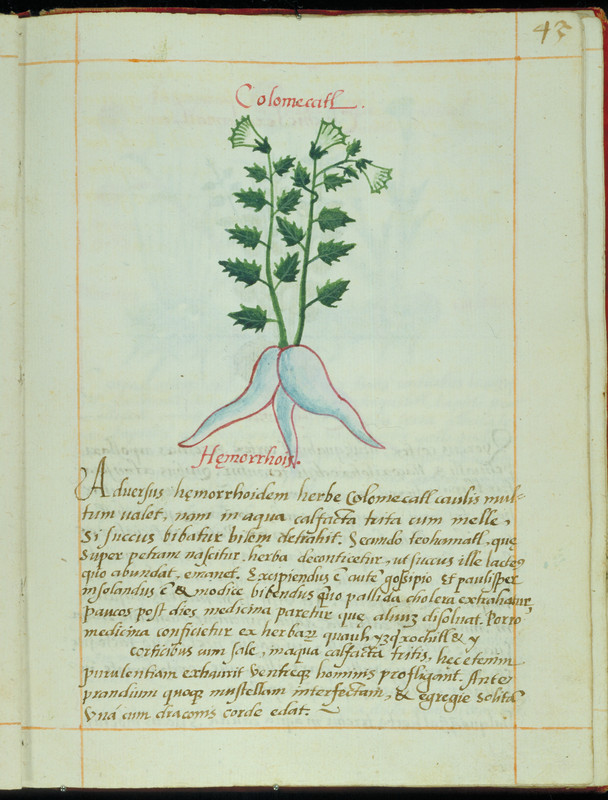 43
Colomecatl.
Hęmorrhois.
Adversus hęmorrhoidem herbe Colomecatl caulis mul-
tum valet, nam in aqua calfacta trita cum melle,
si succus bibatur bilem detrahit. Secundo teohamatl, quę
super petram nascitur, herba deconticetur, ut succus ille lacteꝰ
quo abundat, emanet. Excipiendus ē gossipio et paulisper
insolandus ē & modice bibendus quo pallida cholera extrahatur,
paucos post dies medicina paretur que alvuz disolvat. Porro
medicina conficietur ex herbaꝝ quauh yzqxochitl & y
corticibus cum sale, in aqua calfacta tritis, hec etenim
purulentiam exhaurit ventreqꝫ hominis profligant. Ante
prandium quoqꝫ mustellam interfectam, & egregie solitā
una cum draconis corde edat.